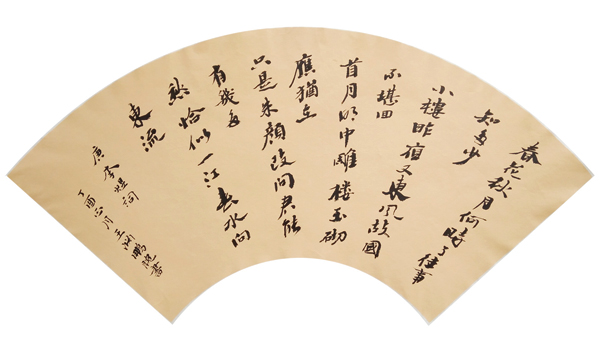 春花秋月何時了往事
知多少
小樓昨宿又東風故國
不堪回
首月明中雕楼玉砌
應猶在
只是朱顔改问君能
有幾多
愁恰似一江春水向
東流
唐李煜词
丁酉正月王鵬書